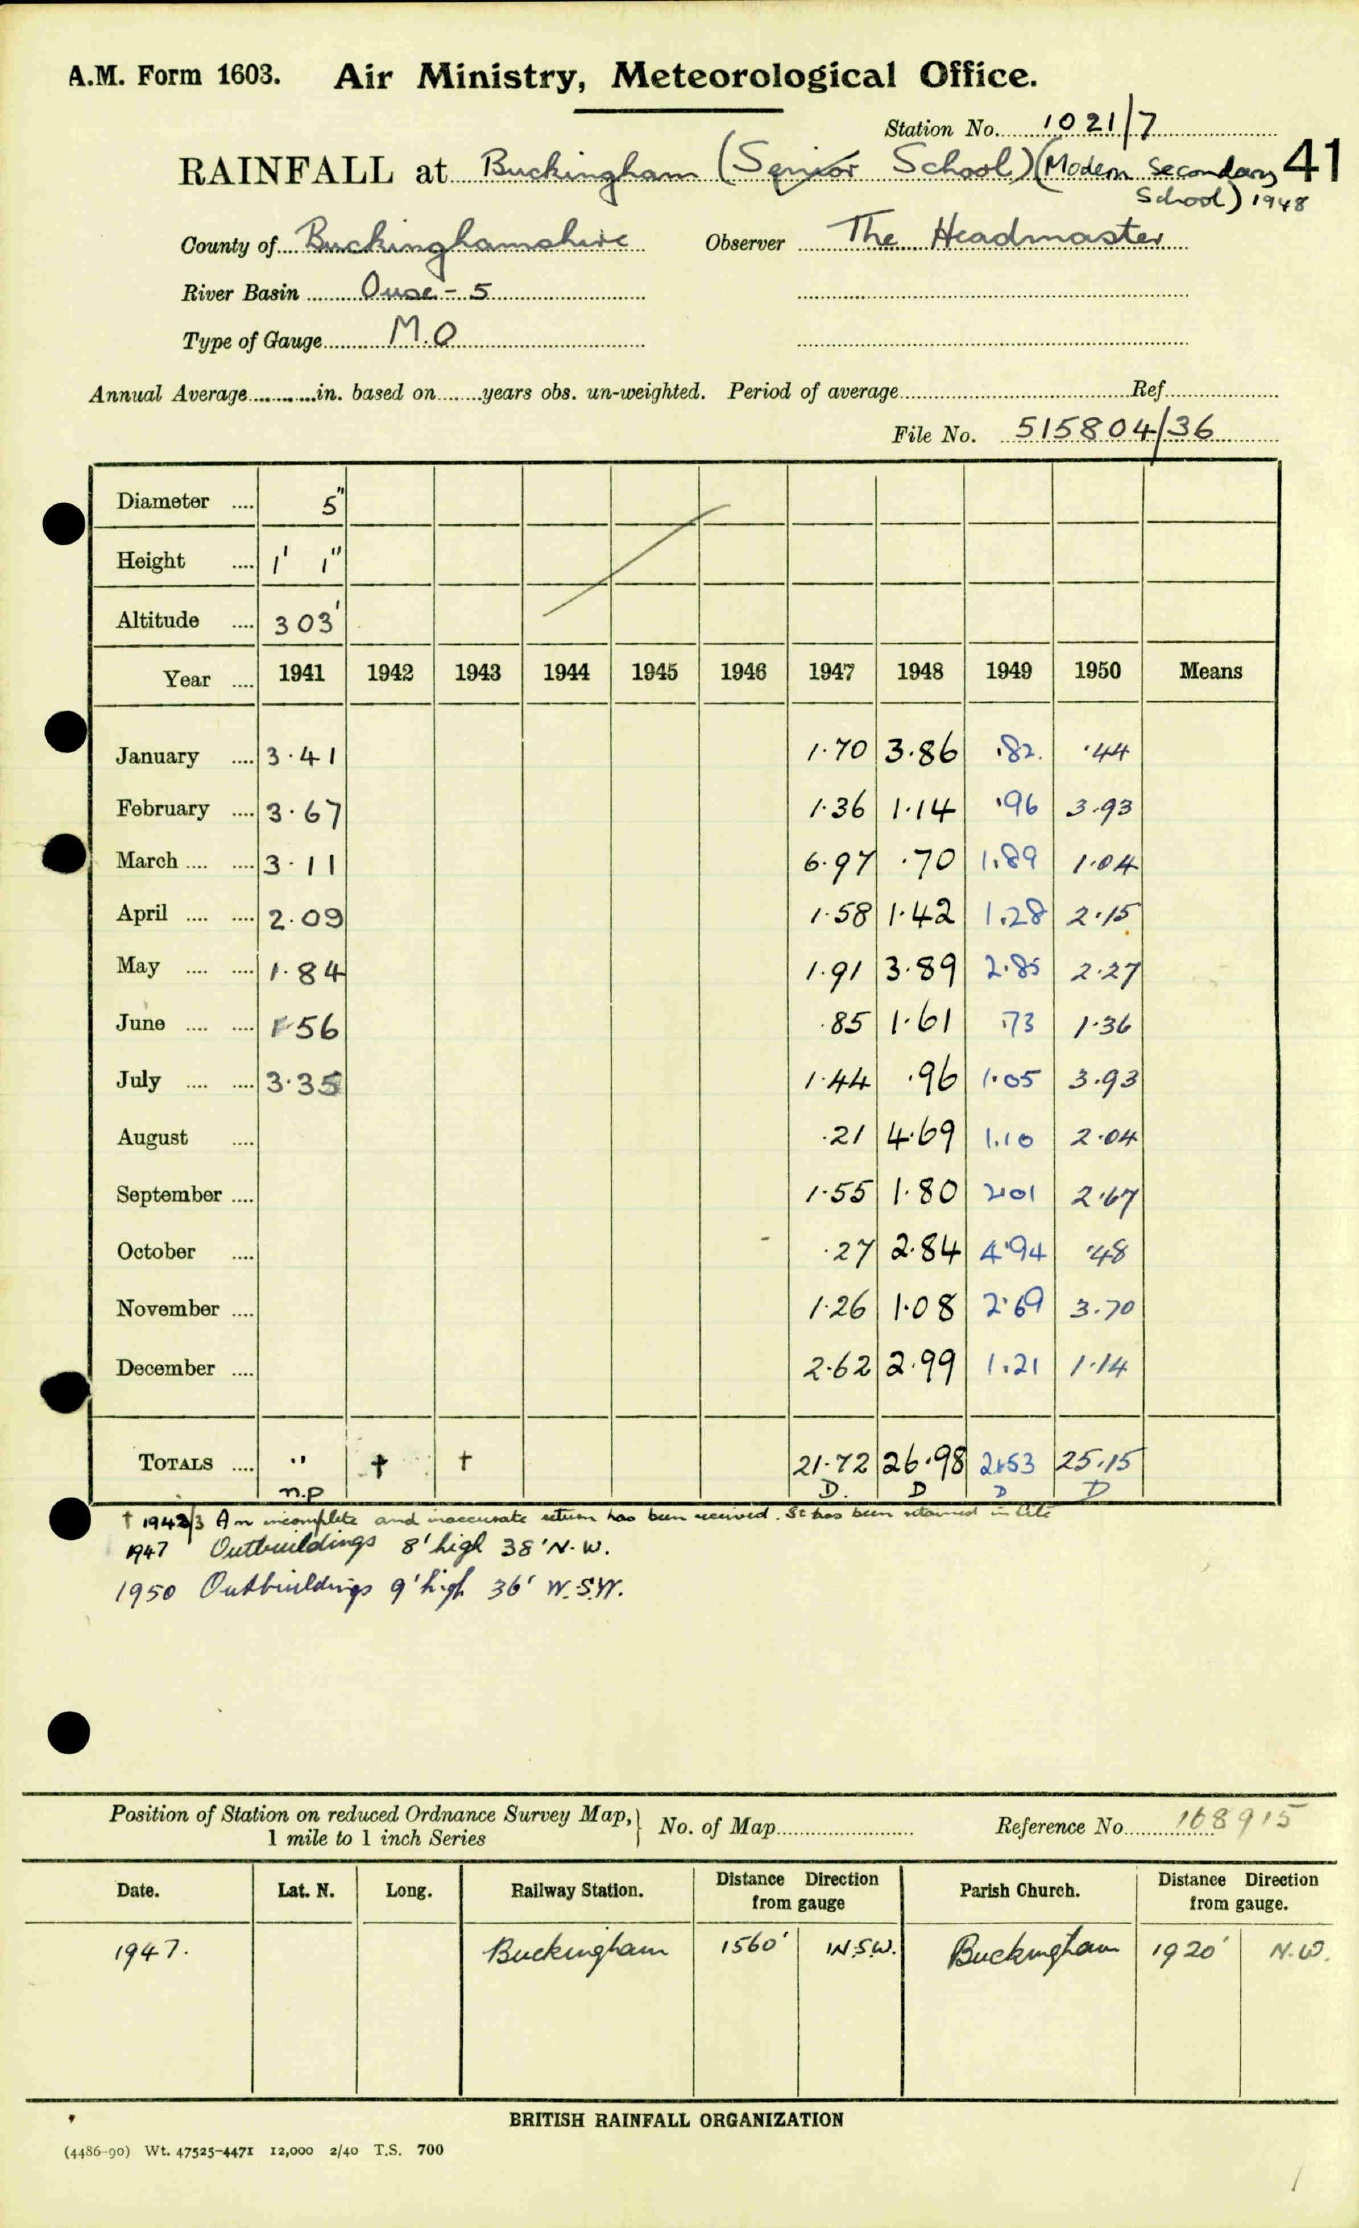 A.M. Form 1603. Air Ministry, Meteorological Office.
Station No. 1021/7
RAINFALL at Buckingham (Senior School) (Modern Secondary 41
School) 1948
County of Buckinghamshire Observer The Headmaster
River Basin Ouse - 5
Type of Gauge M.O
Annual Average in. based on years obs. un-weighted. Period of average Ref
File No. 515804/36
Diameter .... 5"
Height .... 1' 1"
Altitude .... 303'
Year .... 1941 1942 1943 1944 1945 1946 1947 1948 1949 1950 Means
January .... 3.41 1.70 3.86 .82 .44
February .... 3.67 1.36 1.14 .96 3.93
March .... .... 3.11 6.97 .70 1.89 1.04
April .... .... 2.09 1.58 1.42 1.28 2.15
May .... .... 1.84 1.91 3.89 2.85 2.27
June .... .... 1.56 .85 1.61 .73 1.36
July .... .... 3.35 1.44 .96 1.05 3.93
August .... .21 4.69 1.10 2.04
September .... 1.55 1.80 2.01 2.67
October .... - .27 2.84 4.94 .48
November .... 1.26 1.08 2.69 3.70
December .... 2.62 2.99 1.21 1.14
TOTALS .... " † † 21.72 26.98 21.53 25.15
n.p D. D D D
† 1942/3 An incomplete and inaccurate return has been received. It has been retained in file
1947 Outbuildings 8' high 38' N.W.
1950 Outbuildings 9' high 36' W.S.W.
Position of Station on reduced Ordnance Survey Map,
1 mile to 1 inch Series } No. of Map Reference No 168915
Date. Lat. N. Long. Railway Station. Distance from gauge Direction Parish Church. Distance from gauge. Direction
1947. Buckingham 1560' W.S.W. Buckingham 1920' N.W.
BRITISH RAINFALL ORGANIZATION
(4486-90) Wt. 47525-4471 12,000 2/40 T.S. 700